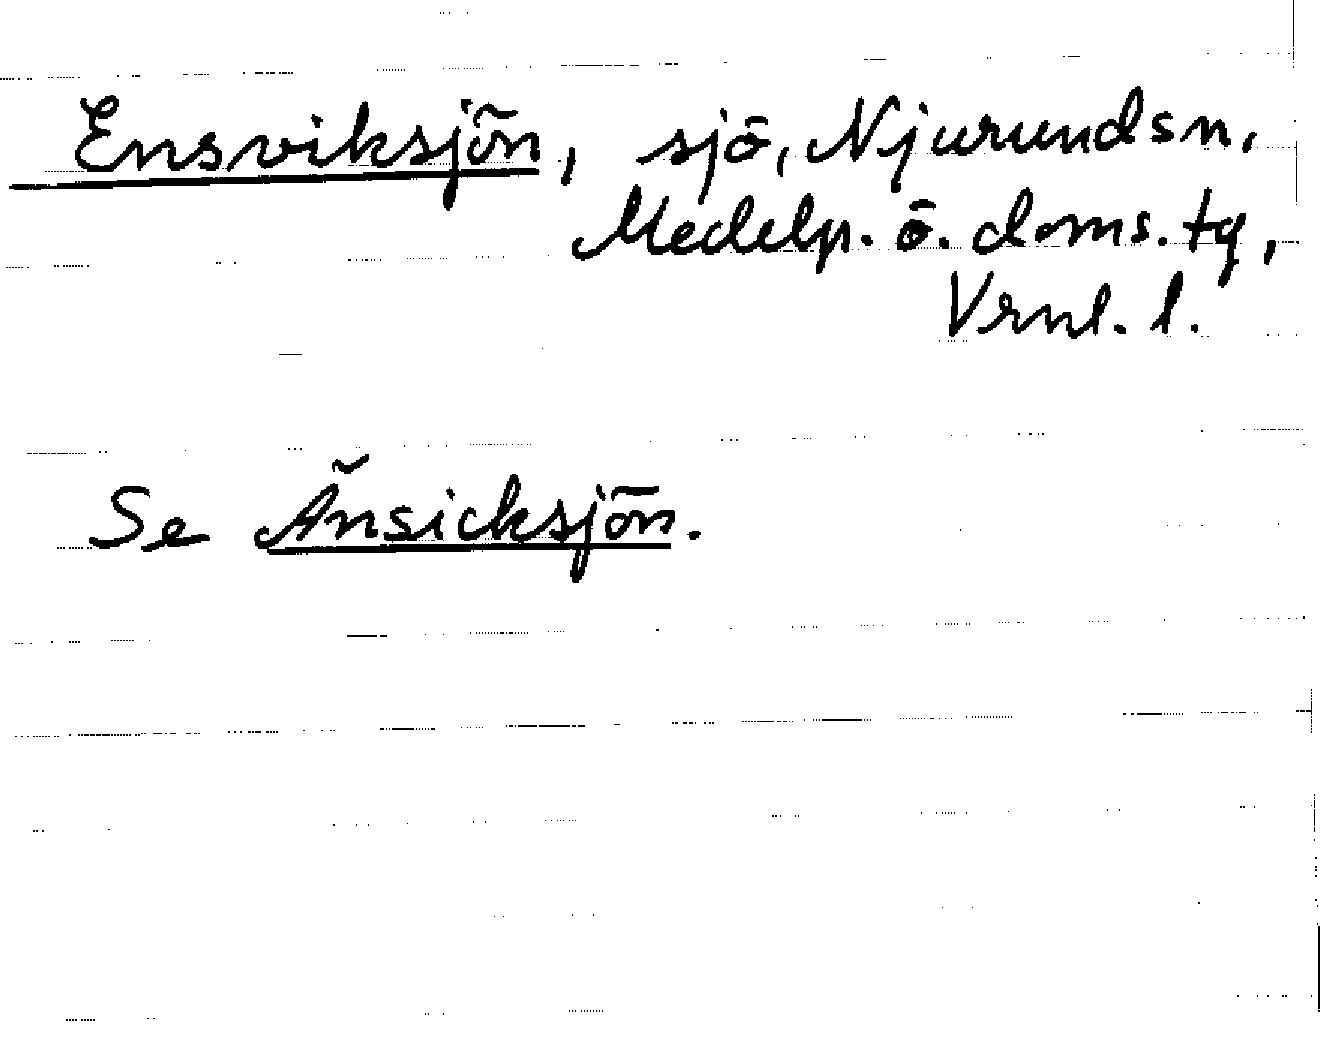 Ensviksjön, sjö, Njurundsn,
Medelp. ö. doms. tg,
Vrnl. l.
Se Änsicksjön.